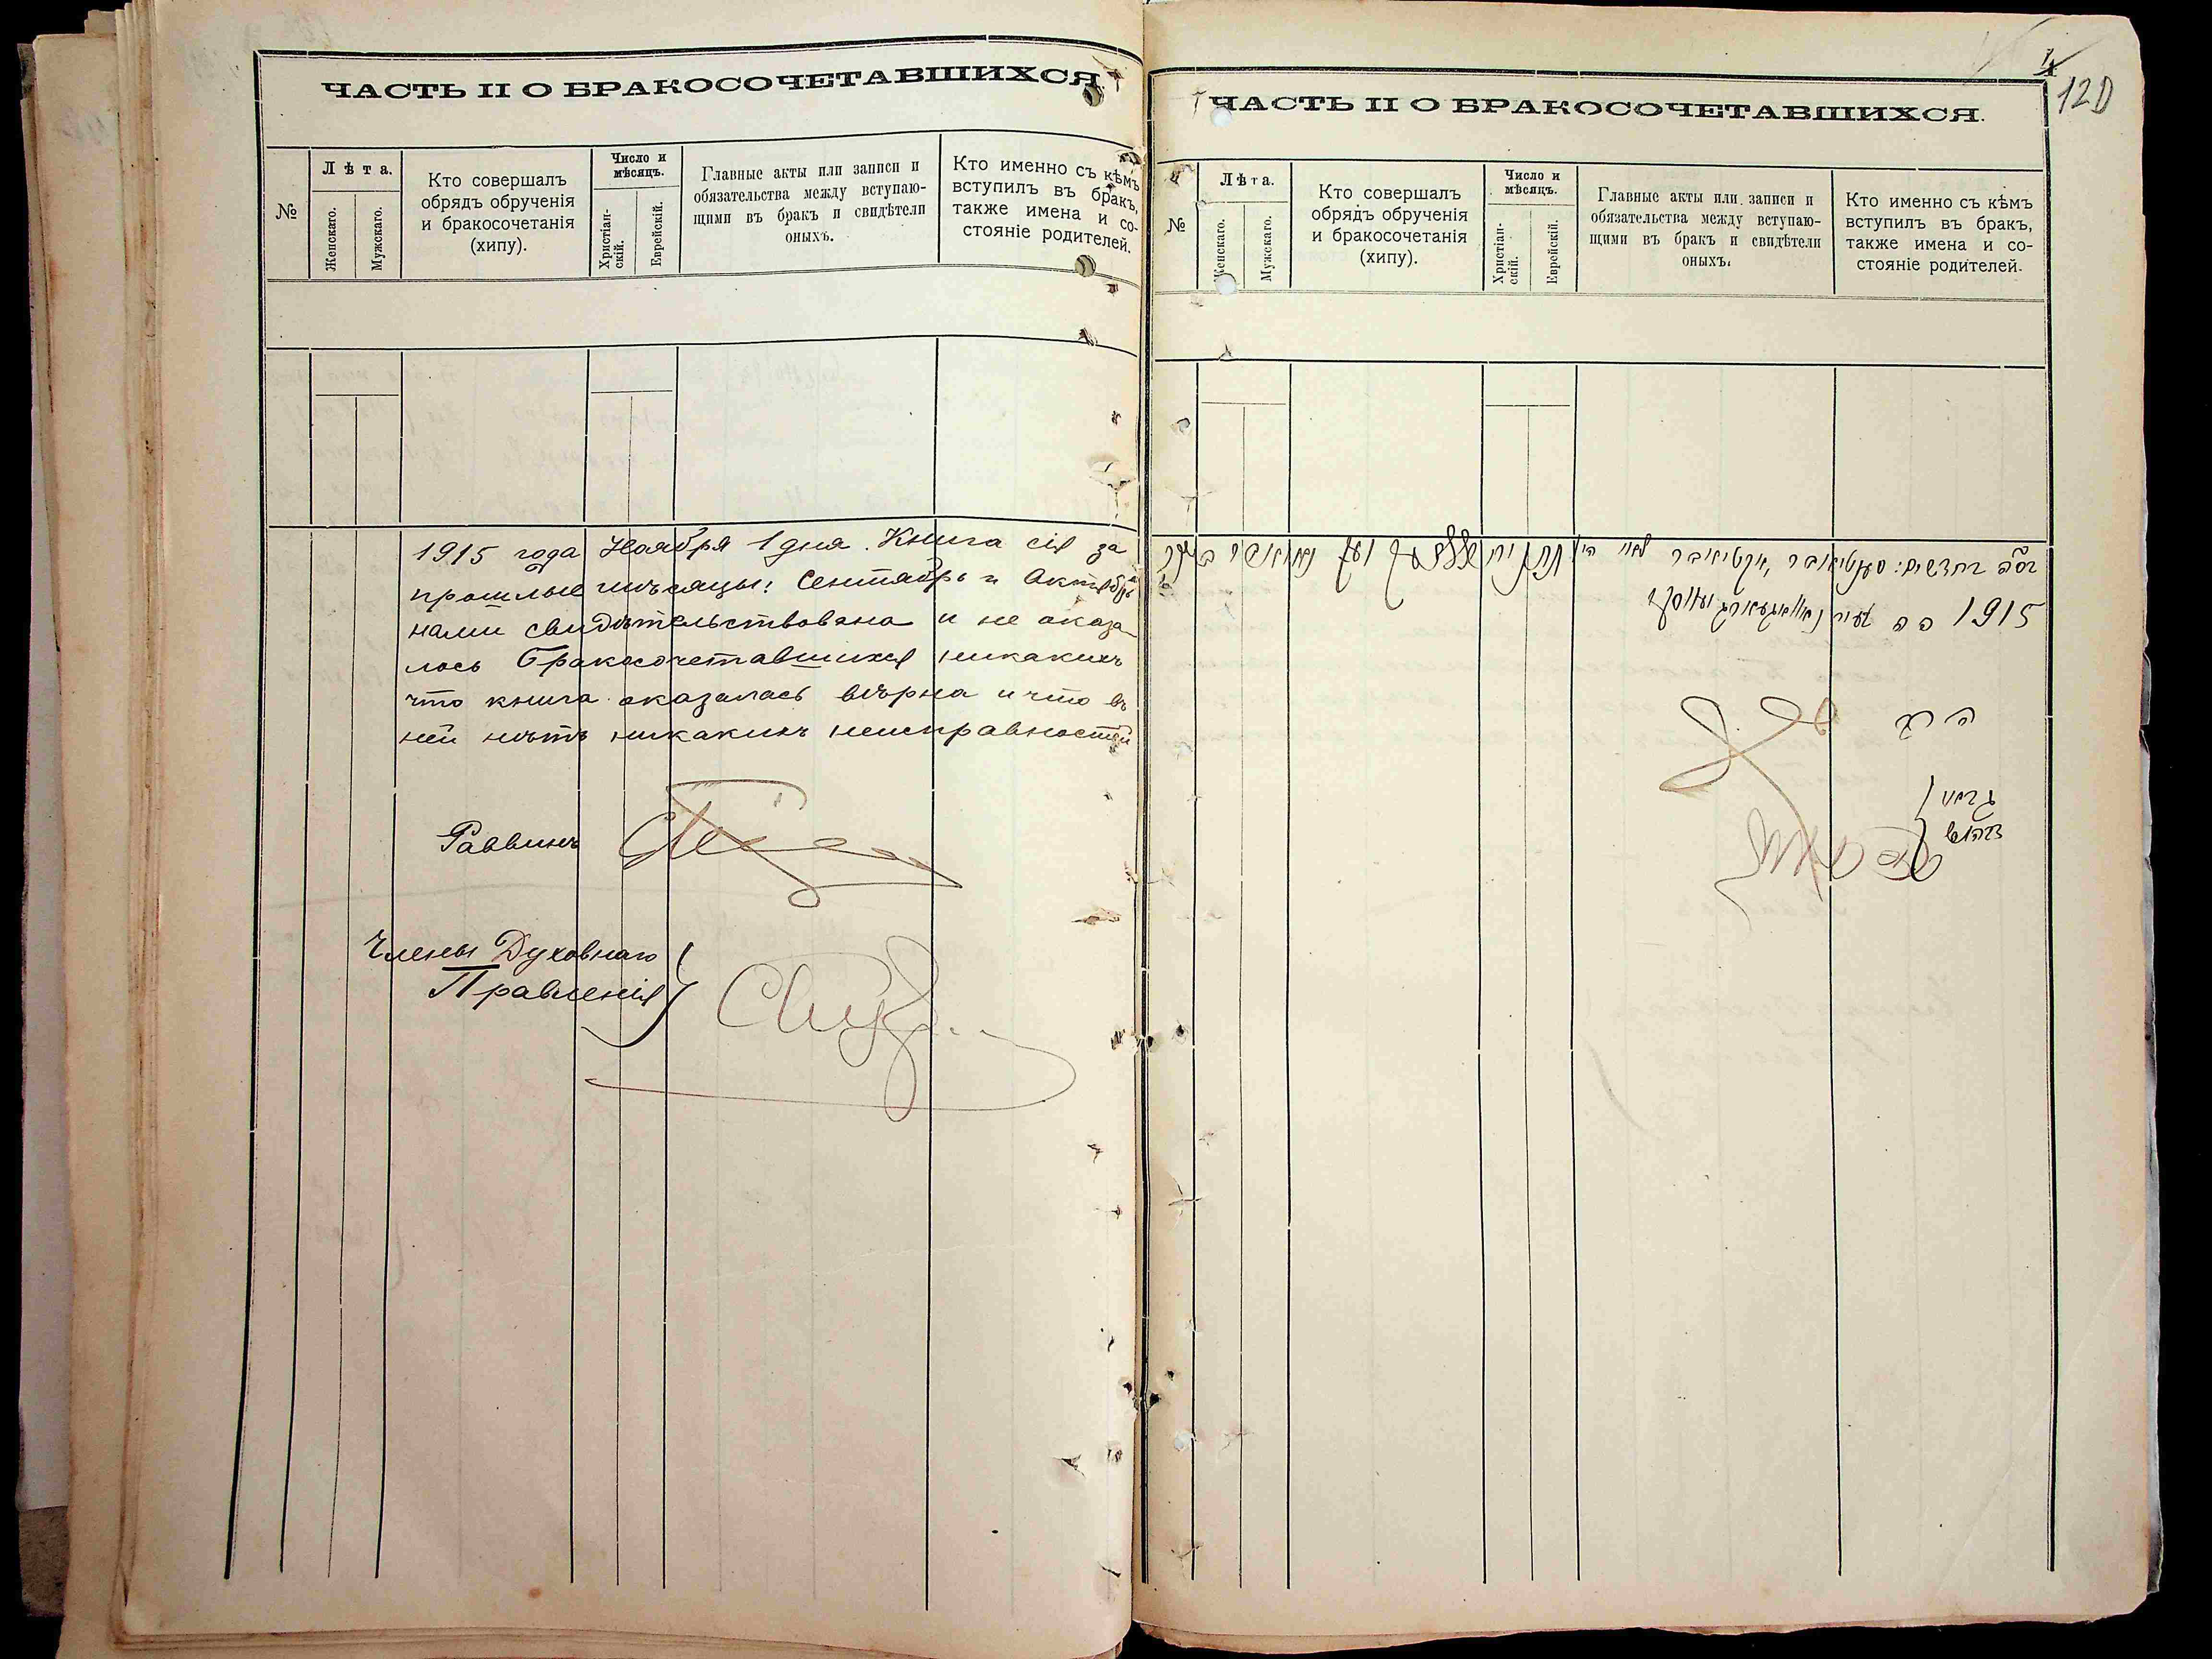 ЧАСТЬ II О БРАКОСОЧЕТАВШИХСЯ
№
Лѣта.
Женскаго.
Мужскаго.
Кто совершалъ
обрядъ обрученія
и бракосочетанія
(хипу).
Число и
мѣсяцъ.
Христіан-
скій.
Еврейскій.
Главные акты или записи и
обязательства между вступаю-
щими въ бракъ и свидѣтели
оныхъ.
Кто именно съ кѣмъ
вступилъ въ бракъ,
также имена и со-
стояніе родителей.
1915 года Ноября 1 дня. Книга сія за
прошлые мѣсяцы: Сентябрь и Октябрь
нами свидѣтельствована и не оказа-
лось Бракосочетавшихся никакихъ
что книга оказалась вѣрна и что въ
ней нѣтъ никакихъ неисправностей
Раввинъ
Члены Духовнаго
Правленія
120
ЧАСТЬ II О БРАКОСОЧЕТАВШИХСЯ.
№
Лѣта.
Женскаго.
Мужскаго.
Кто совершалъ
обрядъ обрученія
и бракосочетанія
(хипу).
Число и
мѣсяцъ.
Христіан-
скій.
Еврейскій.
Главные акты или записи и
обязательства между вступаю-
щими въ бракъ и свидѣтели
оныхъ.
Кто именно съ кѣмъ
вступилъ въ бракъ,
также имена и со-
стояніе родителей.
1915